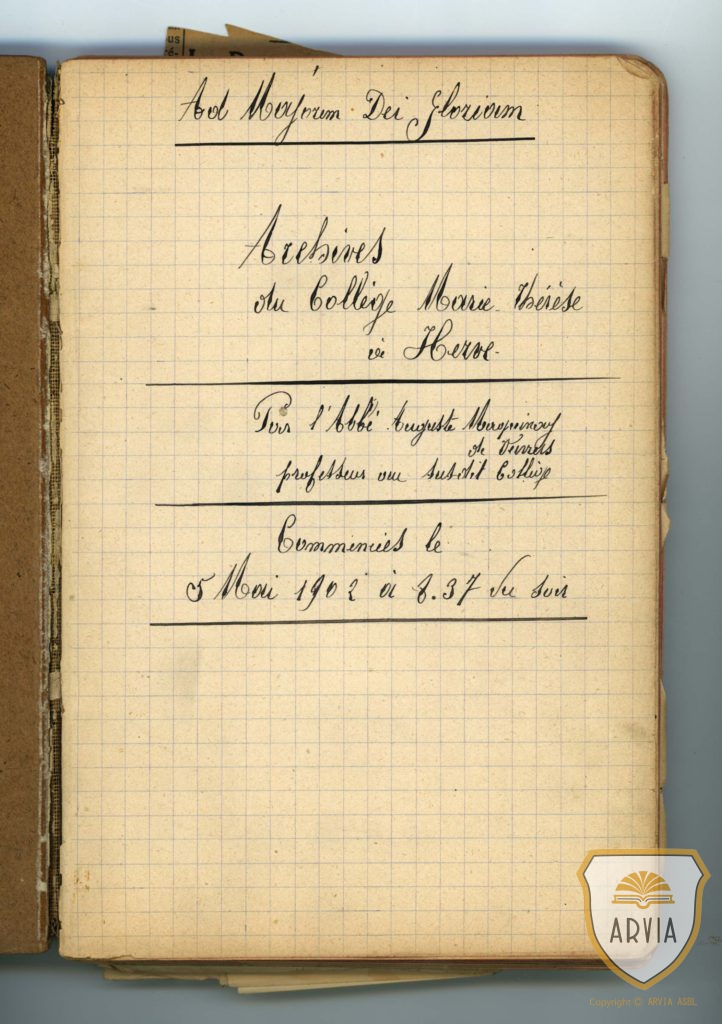 us
Ad Majorem Dei Gloriam
Archives
du Collège Marie-Thérèse
à Herve.
Par l'Abbé Auguste Maquinay
de Verviers
professeur au susdit Collège
Commencées le
5 Mai 1902 à 8.37 du soir
ARVIA
Copyright © ARVIA ASBL